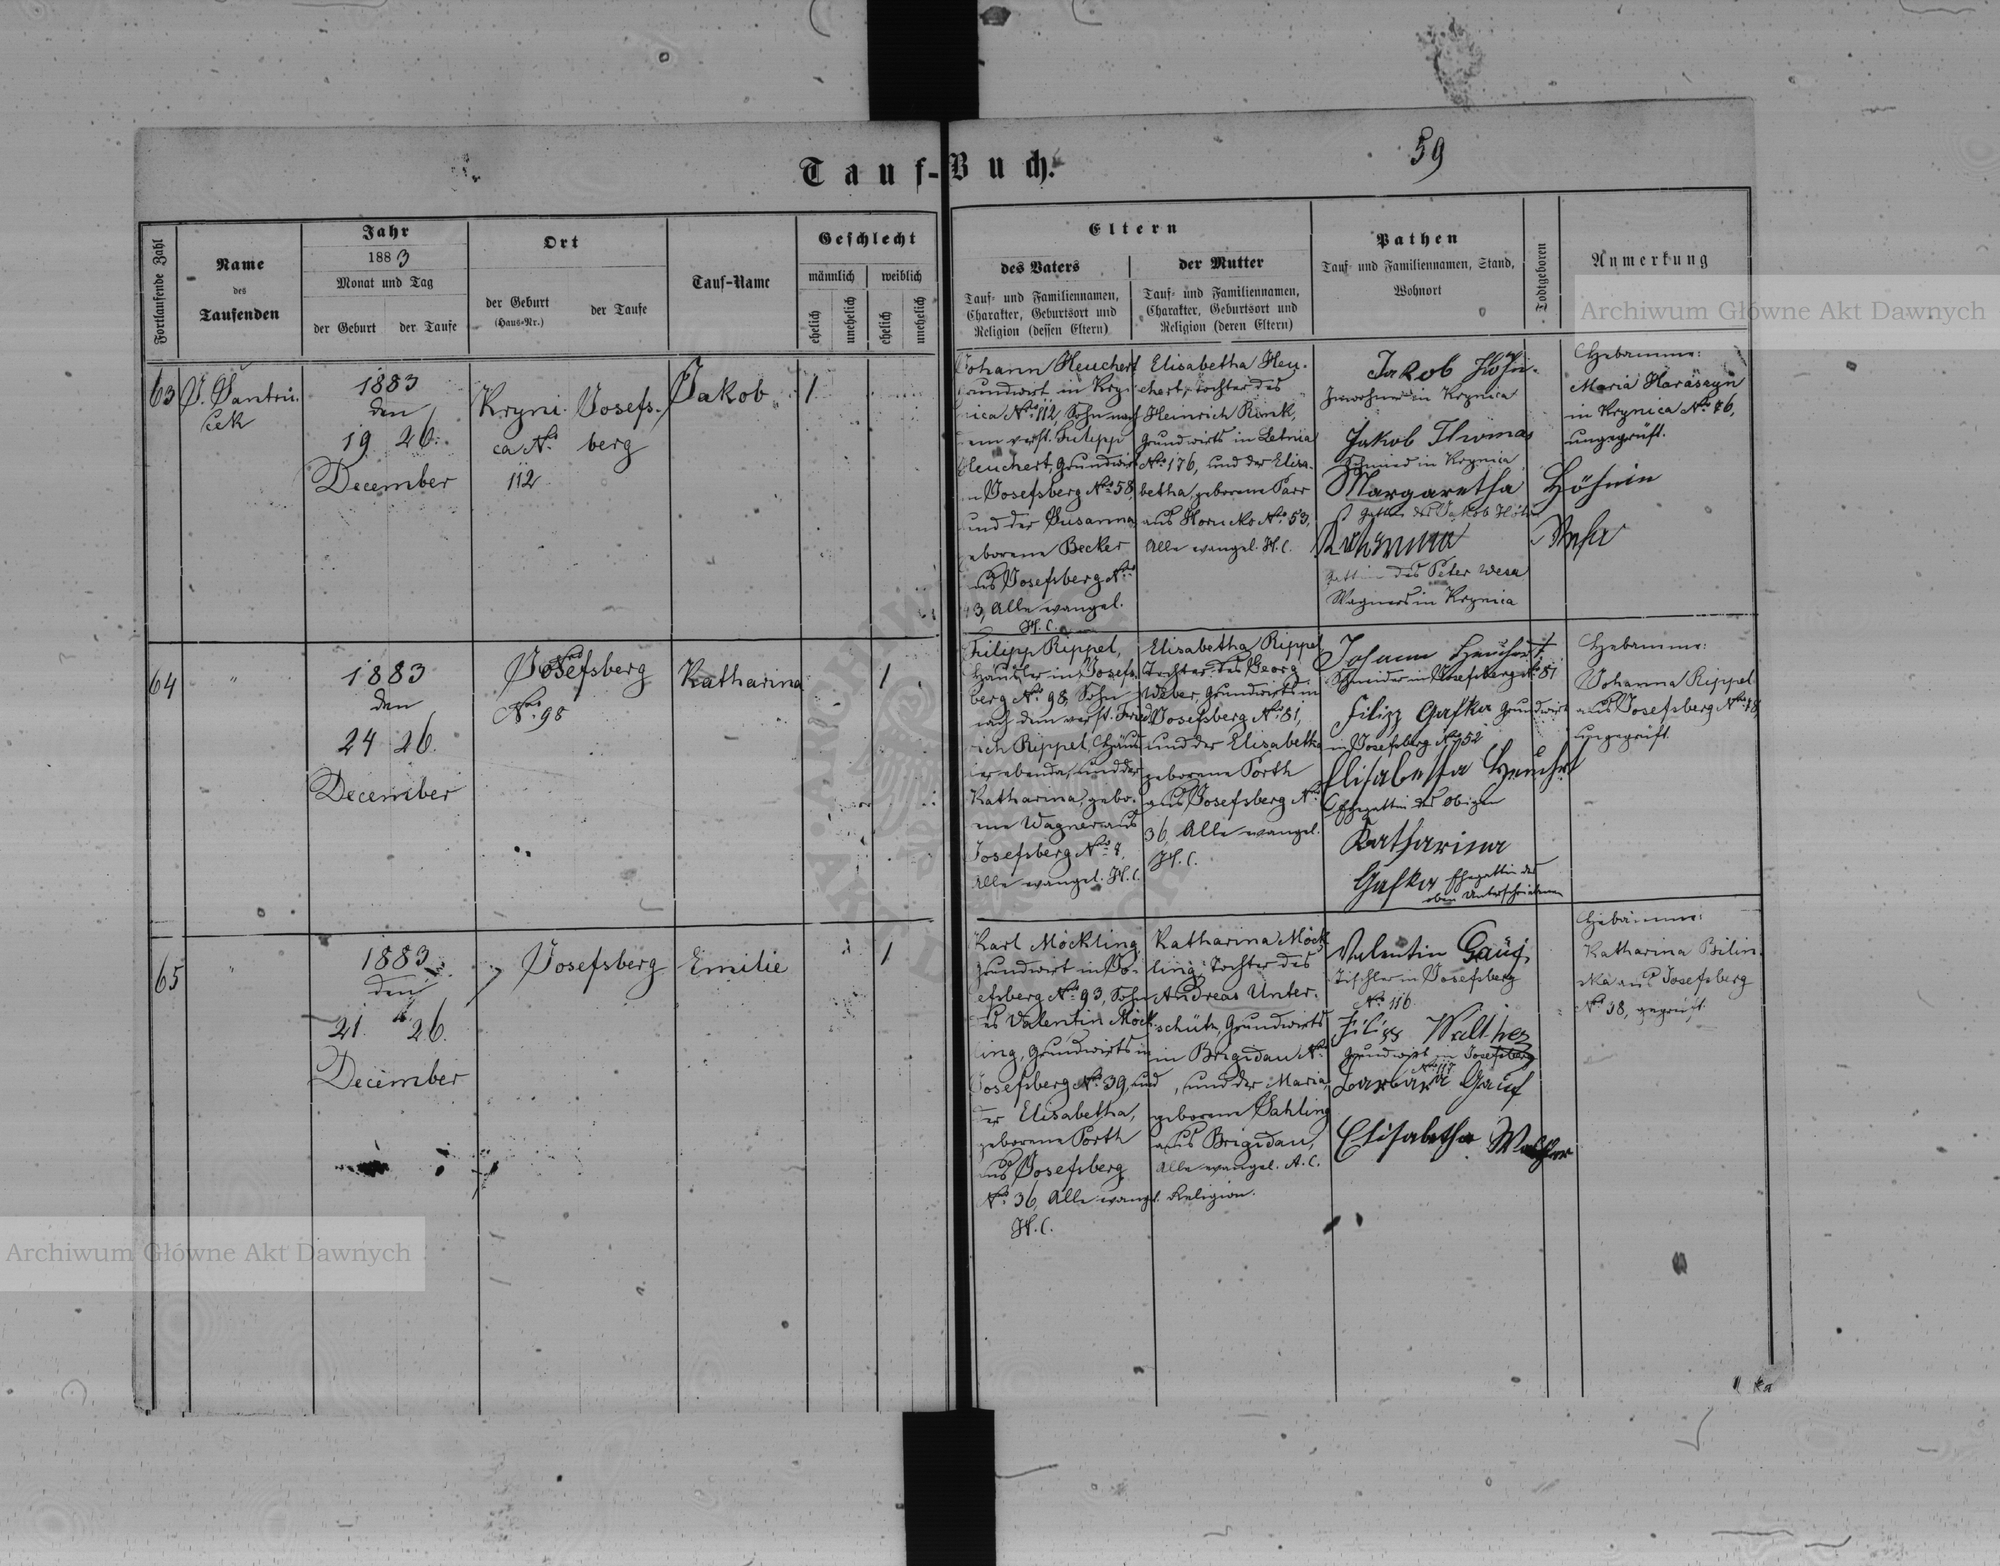 59
Tauf-Buch.
Fortlaufende Zahl
Name
des
Taufenden
Jahr
1883
Monat und Tag
der Geburt
der Taufe
Ort
der Geburt
(Haus-Nr.)
der Taufe
Tauf-Name
Geschlecht
männlich
weiblich
ehelich
unehelich
ehelich
unehelich
Eltern
des Vaters
Tauf- und Familiennamen,
Charakter, Geburtsort und
Religion (dessen Eltern)
der Mutter
Tauf- und Familiennamen,
Charakter, Geburtsort und
Religion (deren Eltern)
Pathen
Tauf- und Familiennamen, Stand,
Wohnort
Todtgeboren
Anmerkung
63
J. Jantru-
cek
1883
den
19 26.
December
Kryni-
ca No
112
Josefs-
berg
Jakob
1
Johann Heuchert
Grundwirt in Kry-
nica No 112, Sohn nach
dem verst. Filipp
Heuchert, Grundwirt
in Josefsberg No 58,
und der Susanna
geborene Becker
aus Josefsberg No
43, Alle evangel.
H. C.
Elisabetha Heu-
chert, Tochter des
Heinrich
Grundwirts in Letnia
No 176, und der Elisa-
betha, geborene Parr
aus No 53,
Alle evangel. H. C.
Jakob Höhn
Inwohner in Krynica
Jakob Thomas
Schmied in Krynica
Margaretha Höhnin
Gattin des Jakob Höhn
Gattin des Peter Wesa
Wagners in Krynica
Hebamme:
Maria Haraszyn
in Krynica No 76,
ungeprüft.
64
"
1883
den
24 26.
December
Josefsberg
No 98
Katharina
1
Filipp Rippel,
Häusler in Josefs-
berg No 98, Sohn
nach dem verst. Fried-
rich Rippel, Häus-
ler ebenda, und der
Katharina, gebo-
rene Wagner aus
Josefsberg No 4,
Alle evangel. H. C.
Elisabetha Rippel
Tochter des Georg
Weber Grundwirts in
Josefsberg No 81,
und der Elisabetha
geborene Porth
aus Josefsberg No
36, Alle evangel.
H. C.
Johann Heuchert
Schneider in Josefsberg No 81
Filipp Gafka Grundwirt
in Josefsberg No 52
Elisabetha Heuchert
Ehegattin des Obigen
Katharina
Gafka Ehegattin des
oben Unterschriebenen
Hebamme:
Johanna Rippel
aus Josefsberg No 18,
ungeprüft.
65
"
1883
den
21. 26.
December
Josefsberg
Emilie
1
Karl Möckling,
Grundwirt in Jo-
sefsberg No 93, Sohn
des Valentin Möck-
ling, Grundwirts in
Josefsberg No 39, und
der Elisabetha,
geborene Porth
aus Josefsberg
No 36, Alle evangel. Religion.
H. C.
Katharina Möck-
ling, Tochter des
Andreas Unter-
schütz, Grundwirts
in Brigidau No
, und der Maria
geborene Sahling
aus Brigidau,
Alle evangel. A. C.
Valentin Gauf
Tischler in Josefsberg
No 116
Filipp Walther
Grundwirt in Josefsberg
No 117
Barbara Gauf
Elisabetha Walther
Hebamme:
Katharina Bilin-
ska aus Josefsberg
No 38, geprüft.
Archiwum Główne Akt Dawnych
Archiwum Główne Akt Dawnych